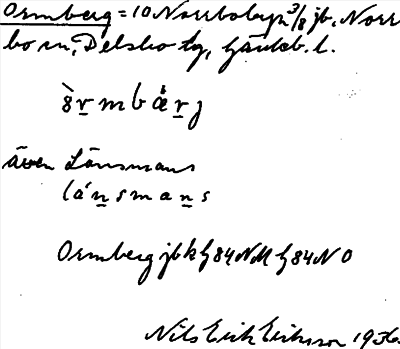 Ormberg = 10 Norrbobyn 3/8 jb, Norr
bo sn, Delsbo tg, Gävleb. l.
även Länsmans
länsmans
Ormberg jbk G84NM G84NO
Nils Erik Eriksson 1936.